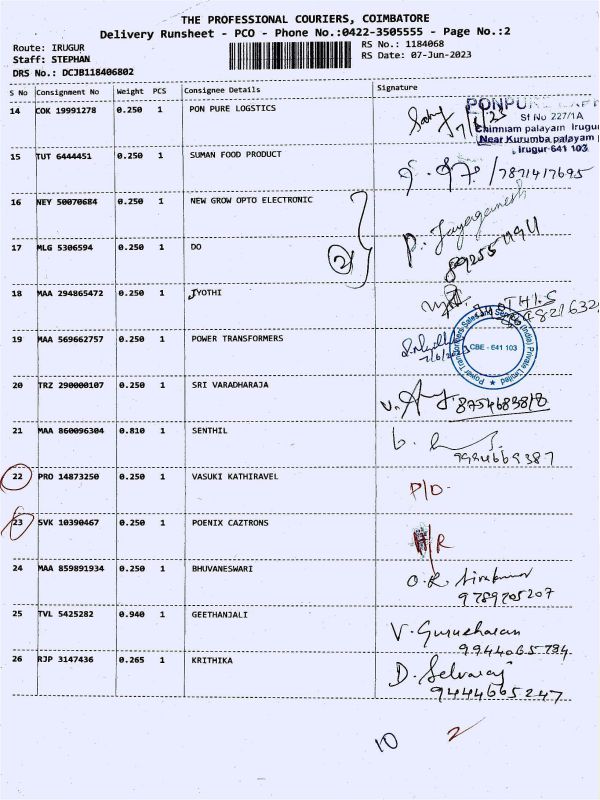 THE PROFESSIONAL COURIERS, COIMBATORE
Delivery Runsheet - PCO - Phone No.:0422-3505555 - Page No.:2
Route: IRUGUR
Staff: STEPHAN
DRS No.: DCJB118406802
RS No.: 1184068
RS Date: 07-Jun-2023
S No Consignment No Weight PCS Consignee Details Signature
14 COK 19991278 0.250 1 PON PURE LOGSTICS
Sf No 227/1A
Chinniam palayam Irugur
Near Kurumba palayam
Irugur-641 103
15 TUT 6444451 0.250 1 SUMAN FOOD PRODUCT
/7871417695
16 NEY 50070684 0.250 1 NEW GROW OPTO ELECTRONIC
P. Jayaganesh
17 MLG 5306594 0.250 1 DO
2
18 MAA 294865472 0.250 1 JYOTHI
19 MAA 569662757 0.250 1 POWER TRANSFORMERS
Power Transformers Sales and Service (India) Private Limited
CBE - 641 103
20 TRZ 290000107 0.250 1 SRI VARADHARAJA
8754683818
21 MAA 860096304 0.810 1 SENTHIL
9994669387
22 PRO 14873250 0.250 1 VASUKI KATHIRAVEL P/D
23 SVK 10390467 0.250 1 POENIX CAZTRONS
24 MAA 859891934 0.250 1 BHUVANESWARI
9789705207
25 TVL 5425282 0.940 1 GEETHANJALI V. Gurucharan
9944065794
26 RJP 3147436 0.265 1 KRITHIKA D. Selvaraj
9444665247
10 2